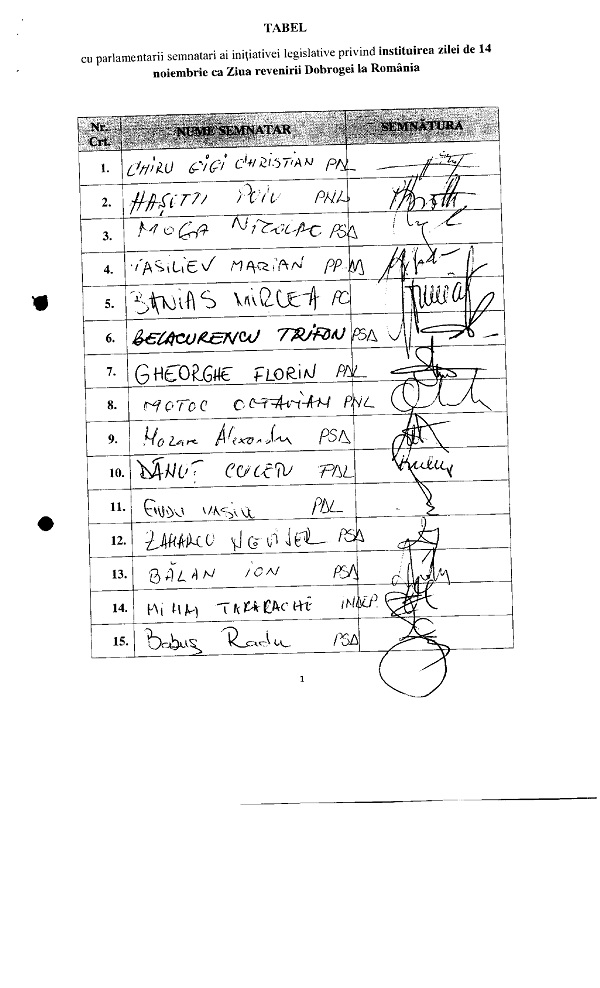 TABEL
cu parlamentarii semnatari ai inițiativei legislative privind instituirea zilei de 14
noiembrie ca Ziua revenirii Dobrogei la România
Nr. Crt. NUME SEMNATAR SEMNĂTURA
1. CHIRU GIGI CHRISTIAN PNL
2. HAȘOTTI PUIU PNL
3. MOGA NICOLAE PSD
4. VASILIEV MARIAN PP
5. BANIAS MIRCEA PC
6. BELACURENCU TRIFON PSD
7. GHEORGHE FLORIN
8. MOTOC OCTAVIAN PNL
9. Mazare Alexandru PSD
10. DĂNUȚ CULETU
11.
12. PSD
13. BĂLAN ION PSD
14. INDEP.
15. Babuș Radu PSD
1